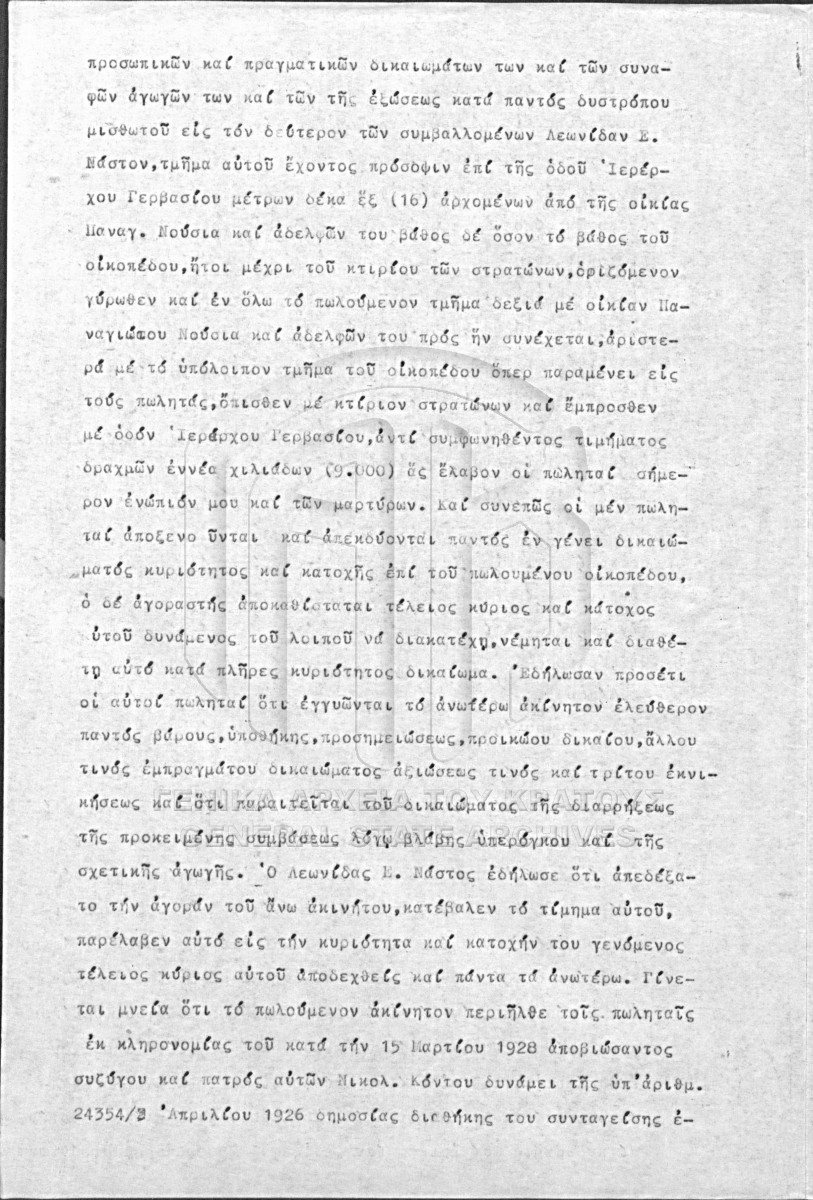 προσωπικῶν καί πραγματικῶν δικαιωμάτων των καί τῶν συνα-
φῶν ἀγωγῶν των καί τῶν τῆς ἐξώσεως κατά παντός δυστρόπου
μισθωτοῦ εἰς τόν δεύτερον τῶν συμβαλλομένων Λεωνίδαν Ε.
Νάστον,τμῆμα αὐτοῦ ἔχοντος πρόσοψιν ἐπί τῆς ὁδοῦ Ἱερέρ-
χου Γερβασίου μέτρων δέκα ἕξ (16) ἀρχομένων ἀπό τῆς οἰκίας
Παναγ. Νούσια καί ἀδελφῶν του βάθος δέ ὅσον τό βάθος τοῦ
οἰκοπέδου,ἤτοι μέχρι τοῦ κτιρίου τῶν στρατώνων,ὁριζόμενον
γύρωθεν καί ἐν ὅλω τό πωλούμενον τμῆμα δεξιά μέ οἰκίαν Πα-
ναγιώτου Νούσια καί ἀδελφῶν του πρός ἥν συνέχεται,ἀριστε-
ρά μέ τό ὑπόλοιπον τμῆμα τοῦ οἰκοπέδου ὅπερ παραμένει εἰς
τούς πωλητάς,ὄπισθεν μέ κτίριον στρατώνων καί ἔμπροσθεν
μέ ὁδόν Ἱεράρχου Γερβασίου,ἀντί συμφωνηθέντος τιμήματος
δραχμῶν ἐννέα χιλιάδων (9.000) ἅς ἔλαβον οἱ πωληταί σήμε-
ρον ἐνώπιόν μου καί τῶν μαρτύρων. Καί συνεπῶς οἱ μέν πωλη-
ταί ἀποξενο ῦνται καί ἀπεκδύονται παντός ἐν γένει δικαιώ-
ματός κυριότητος καί κατοχῆς ἐπί τοῦ πωλουμένου οἰκοπέδου,
ὁ δέ ἀγοραστής ἀποκαθίσταται τέλειος κύριος καί κάτοχος
ὐτοῦ δυνάμενος τοῦ λοιποῦ νά διακατέχῃ,νέμηται καί διαθέ-
τῃ αὐτό κατά πλῆρες κυριότητος δικαίωμα. Ἐδήλωσαν προσέτι
οἱ αὐτοί πωληταί ὅτι ἐγγυῶνται τό ἀνωτέρω ἀκίνητον ἐλεύθερον
παντός βάρους,ὑποθήκης,προσημειώσεως,προικώου δικαίου,ἄλλου
τινός ἐμπραγμάτου δικαιώματος ἀξιώσεως τινός καί τρίτου ἐκνι-
κήσεως καί ὅτι παραιτεῖται τοῦ δικαιώματος τῆς διαρρήξεως
τῆς προκειμένης συμβάσεως λόγῳ βλάβης ὑπερόγκου καί τῆς
σχετικῆς ἀγωγῆς. Ὁ Λεωνίδας Ε. Νάστος ἐδήλωσε ὅτι ἀπεδέξα-
το τήν ἀγοράν τοῦ ἄνω ἀκινήτου,κατέβαλεν τό τίμημα αὐτοῦ,
παρέλαβεν αὐτό εἰς τήν κυριότητα καί κατοχήν του γενόμενος
τέλειος κύριος αὐτοῦ ἀποδεχθείς καί πάντα τά ἀνωτέρω. Γίνε-
ται μνεία ὅτι τό πωλούμενον ἀκίνητον περιῆλθε τοῖς πωληταῖς
ἐκ κληρονομίας τοῦ κατά τήν 15 Μαρτίου 1928 ἀποβιώσαντος
συζύγου καί πατρός αὐτῶν Νικολ. Κόντου δυνάμει τῆς ὑπ'ἀριθμ.
24354/ Ἀπριλίου 1926 δημοσίας διαθήκης του συνταγείσης ἐ-
ΓΕΝΙΚΑ ΑΡΧΕΙΑ ΤΟΥ ΚΡΑΤΟΥΣ
GENERAL STATE ARCHIVES